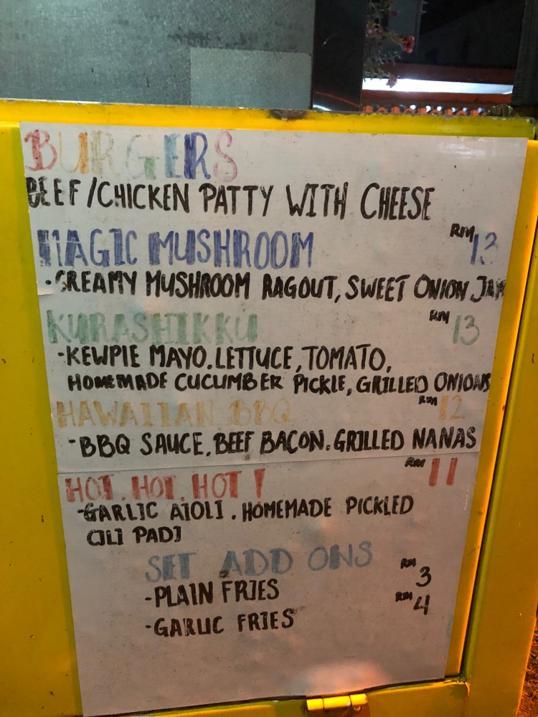 BURGERS
BEEF/CHICKEN PATTY WITH CHEESE
MAGIC MUSHROOM RM 13
-CREAMY MUSHROOM RAGOUT, SWEET ONION JAM
KURASHIKKU RM 13
-KEWPIE MAYO.LETTUCE, TOMATO,
HOMEMADE CUCUMBER PICKLE, GRILLED ONIONS
HAWAIIAN BBQ RM 12
-BBQ SAUCE, BEEF BACON. GRILLED NANAS
HOT. HOT. HOT! RM 11
-GARLIC AIOLI. HOMEMADE PICKLED
CILI PADI
SET ADD ONS
-PLAIN FRIES RM 3
-GARLIC FRIES RM 4